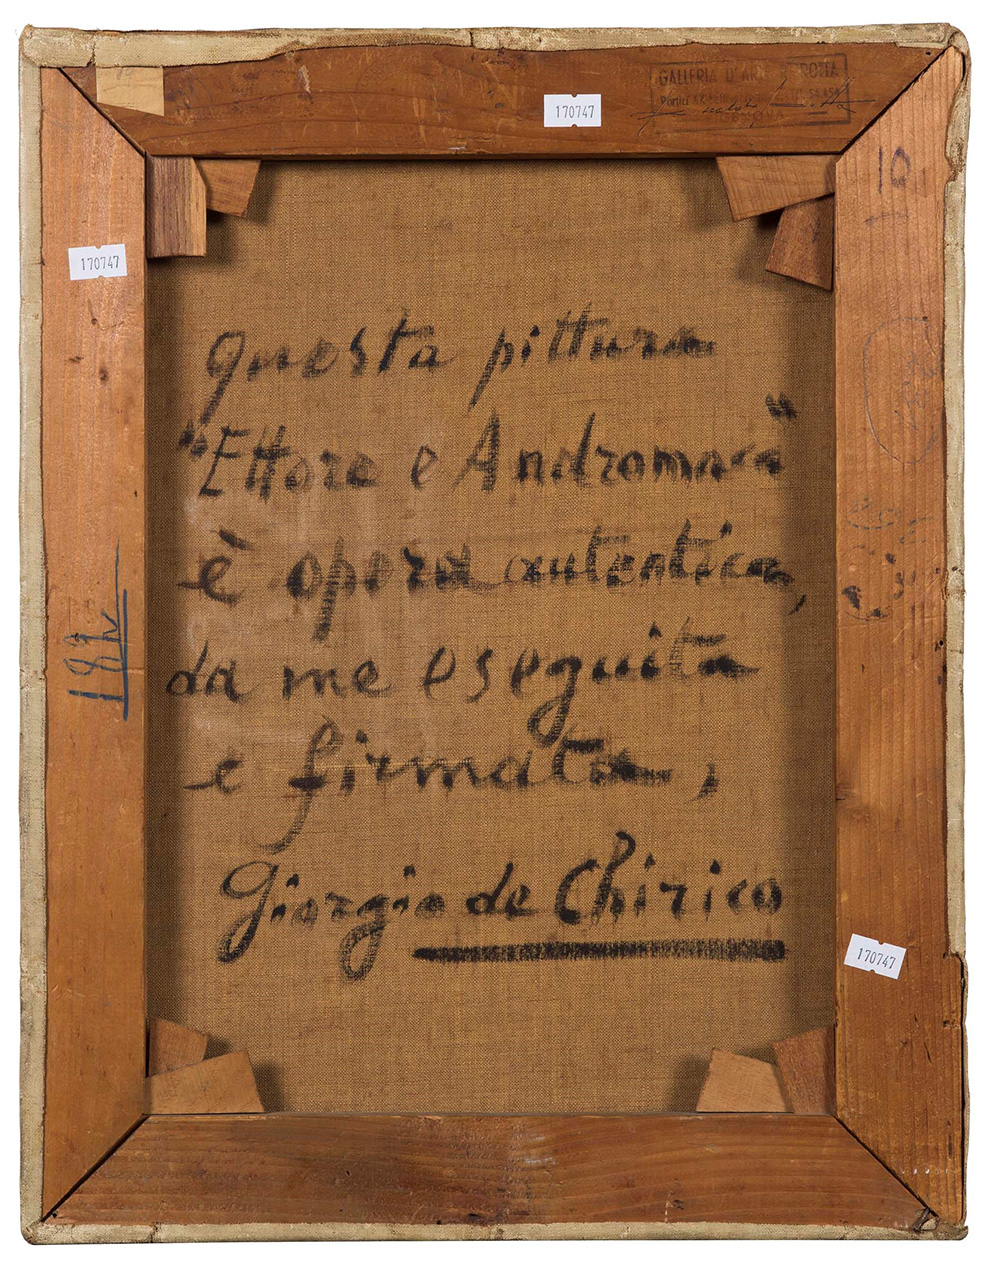 GALLERIA D'ARTE ROTTA
170747
10
170747
Questa pittura
"Ettore e Andromaca"
è opera autentica,
da me eseguita
e firmata,
Giorgio de Chirico
170747